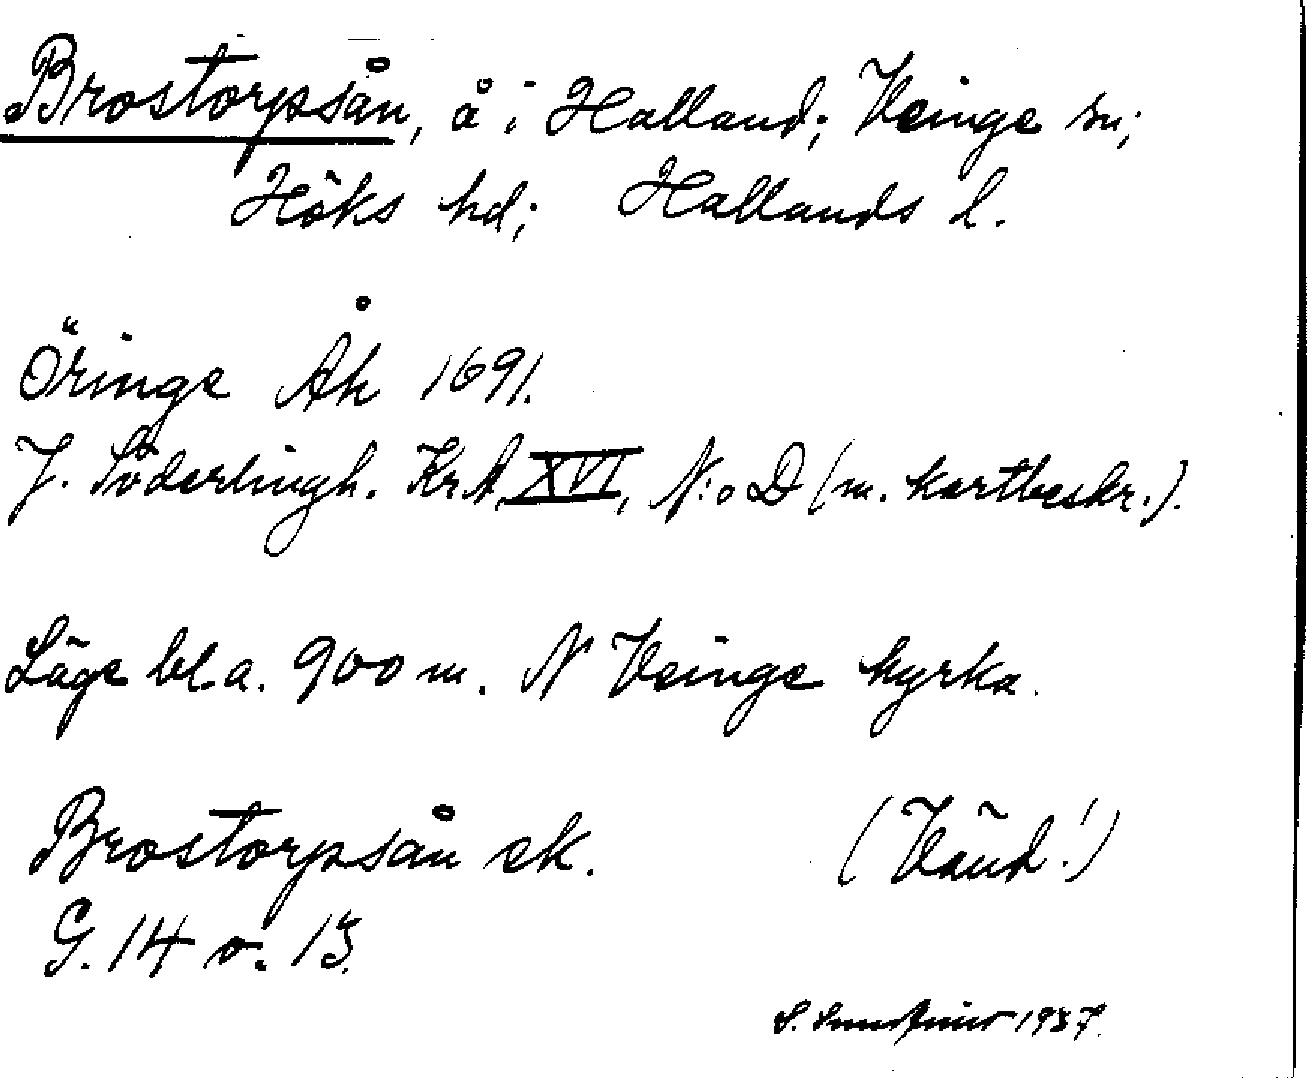 Brostorpsån, å i Halland; Veinge sn;
Höks hd; Hallands l.
Öringe Åh 1691.
J. Söderlingh. Kr.A. XVI, N:o D (m. kartbeskr.).
Läge bl.a. 900 m. N Veinge kyrka.
Brostorpsån ek. (Vänd!)
G. 14 o. 13.
S. 1937.